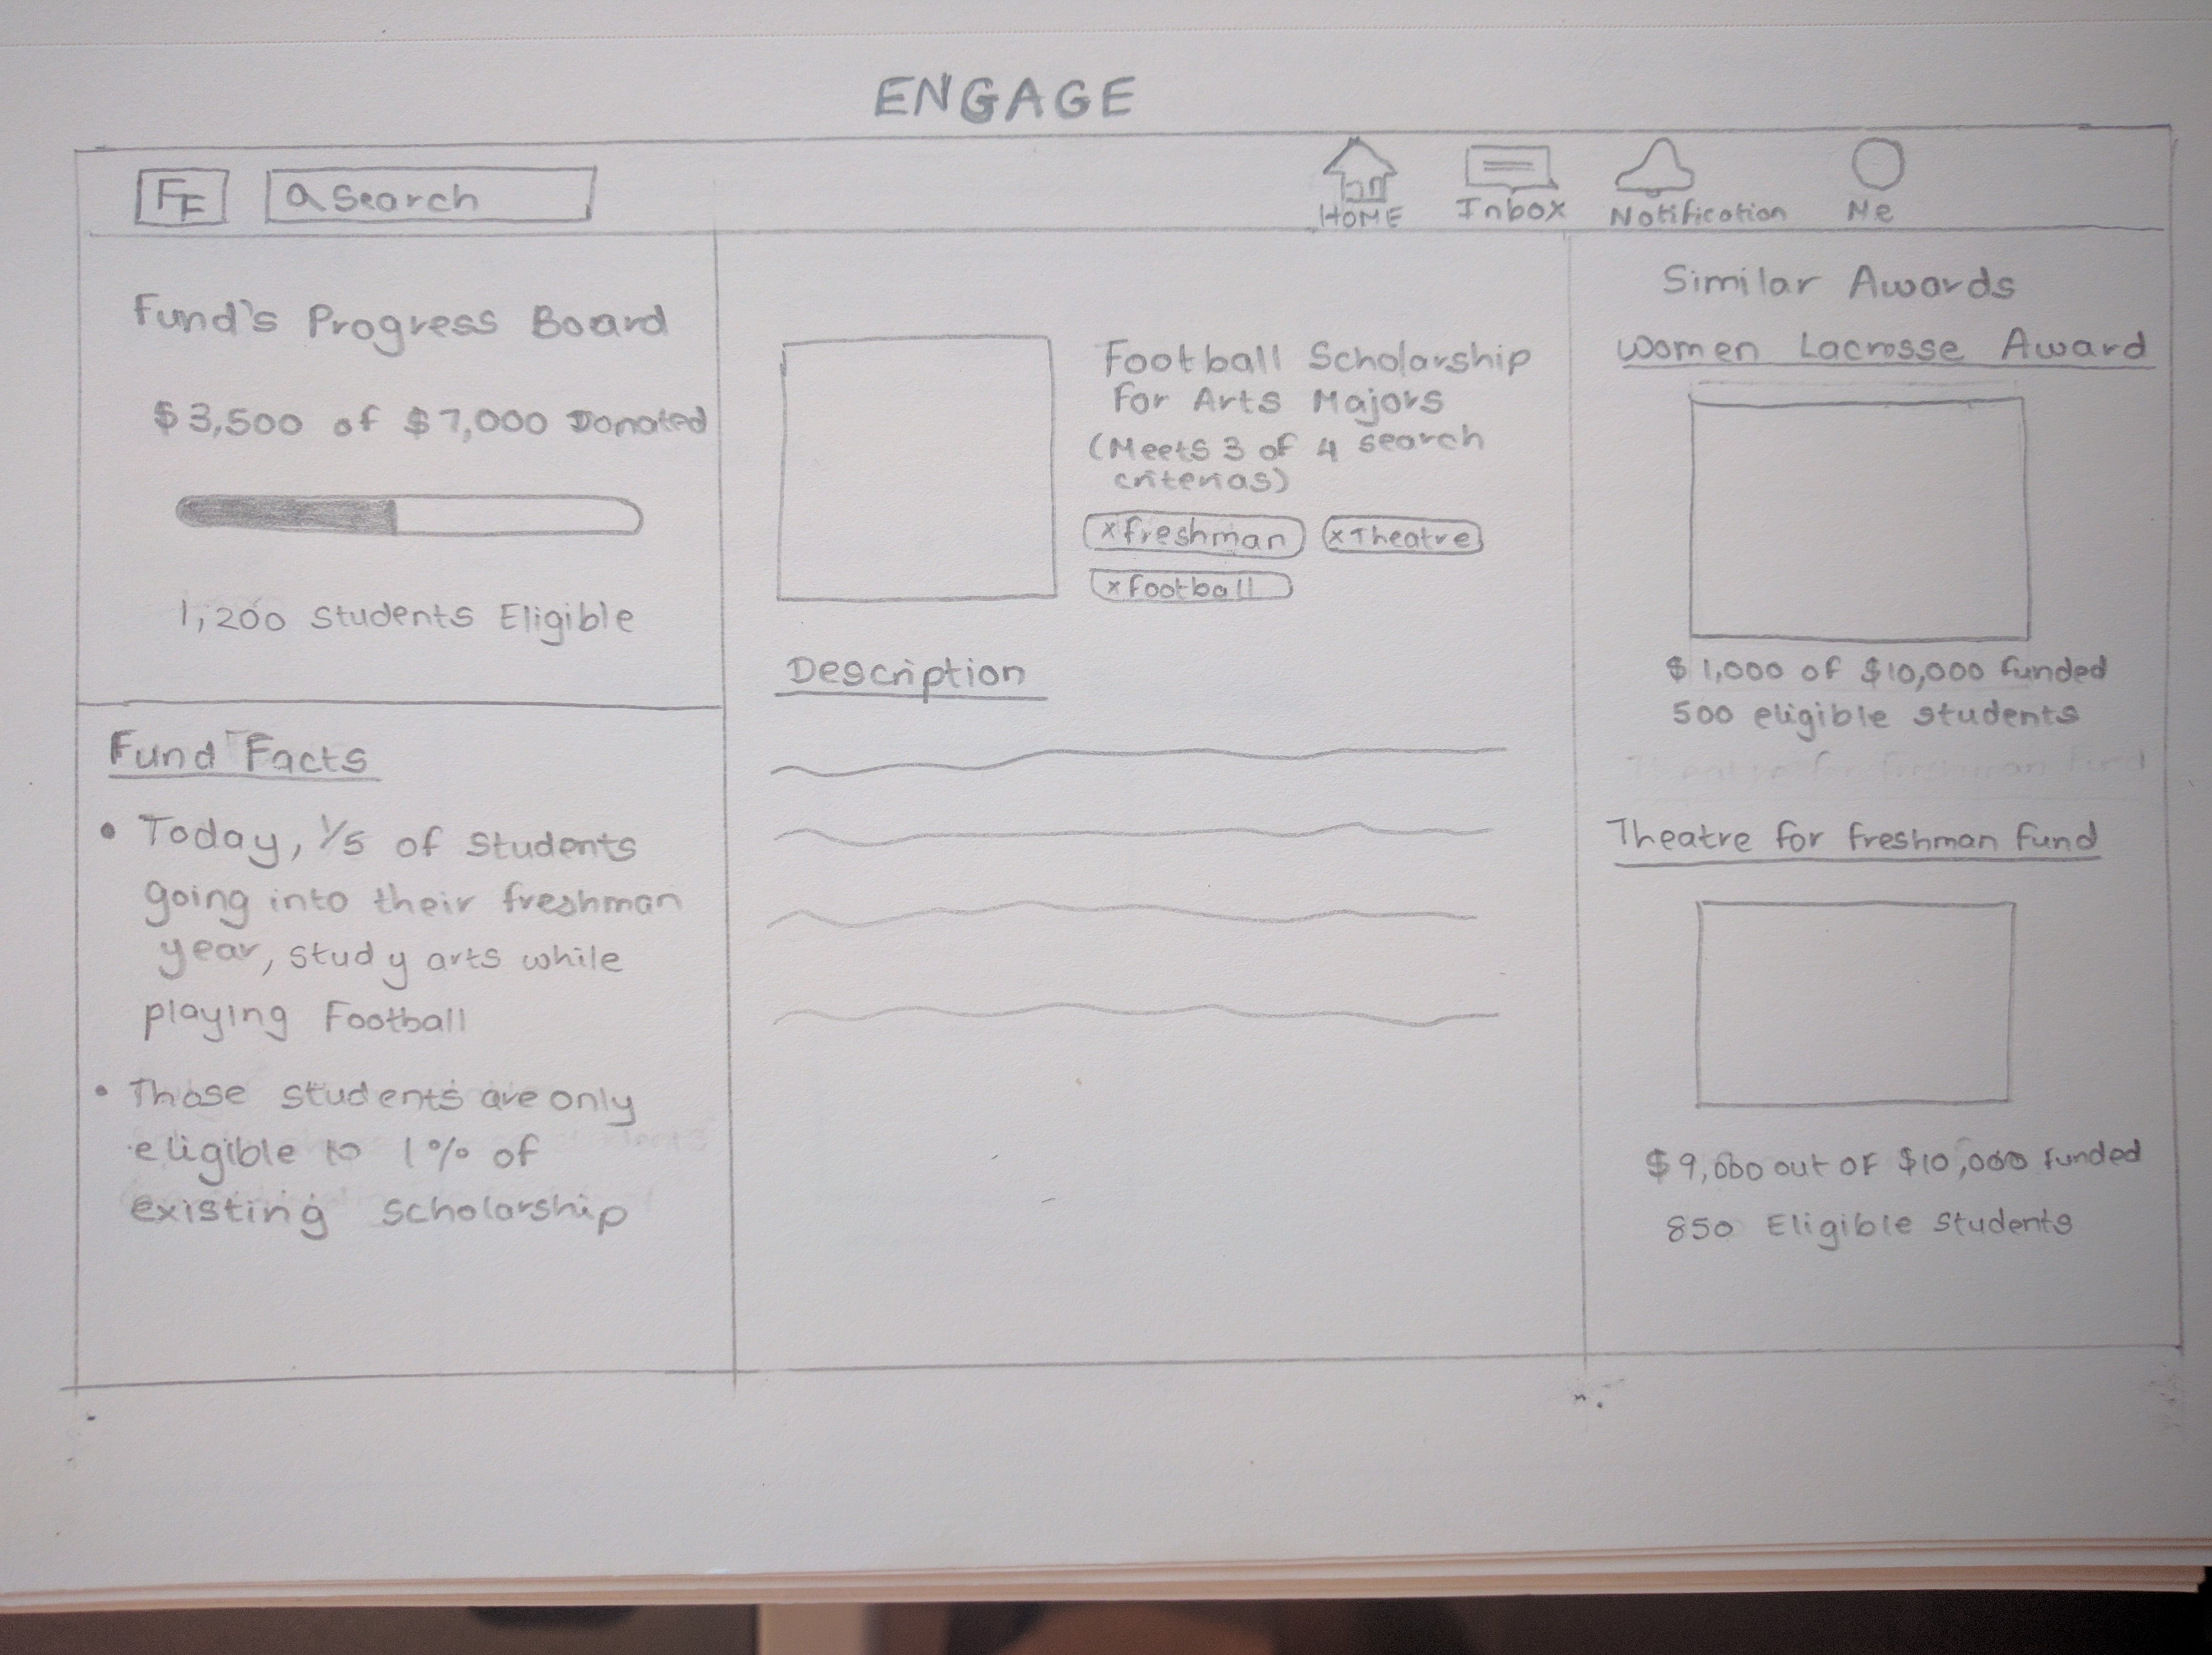 ENGAGE
FF
Search
HOME
Inbox
Notification
Me
Fund's Progress Board
$3,500 of $7,000 Donated
1,200 Students Eligible
Fund Facts
• Today, 1/5 of Students
going into their freshman
year, study arts while
playing Football
• Those students are only
eligible to 1% of
existing scholarship
Football Scholarship
For Arts Majors
(Meets 3 of 4 search
criterias)
x freshman
x Theatre
x football
Description
Similar Awards
Women Lacrosse Award
$1,000 of $10,000 funded
500 eligible students
Theatre for freshman fund
Theatre for freshman fund
$9,000 out of $10,000 funded
850 Eligible Students